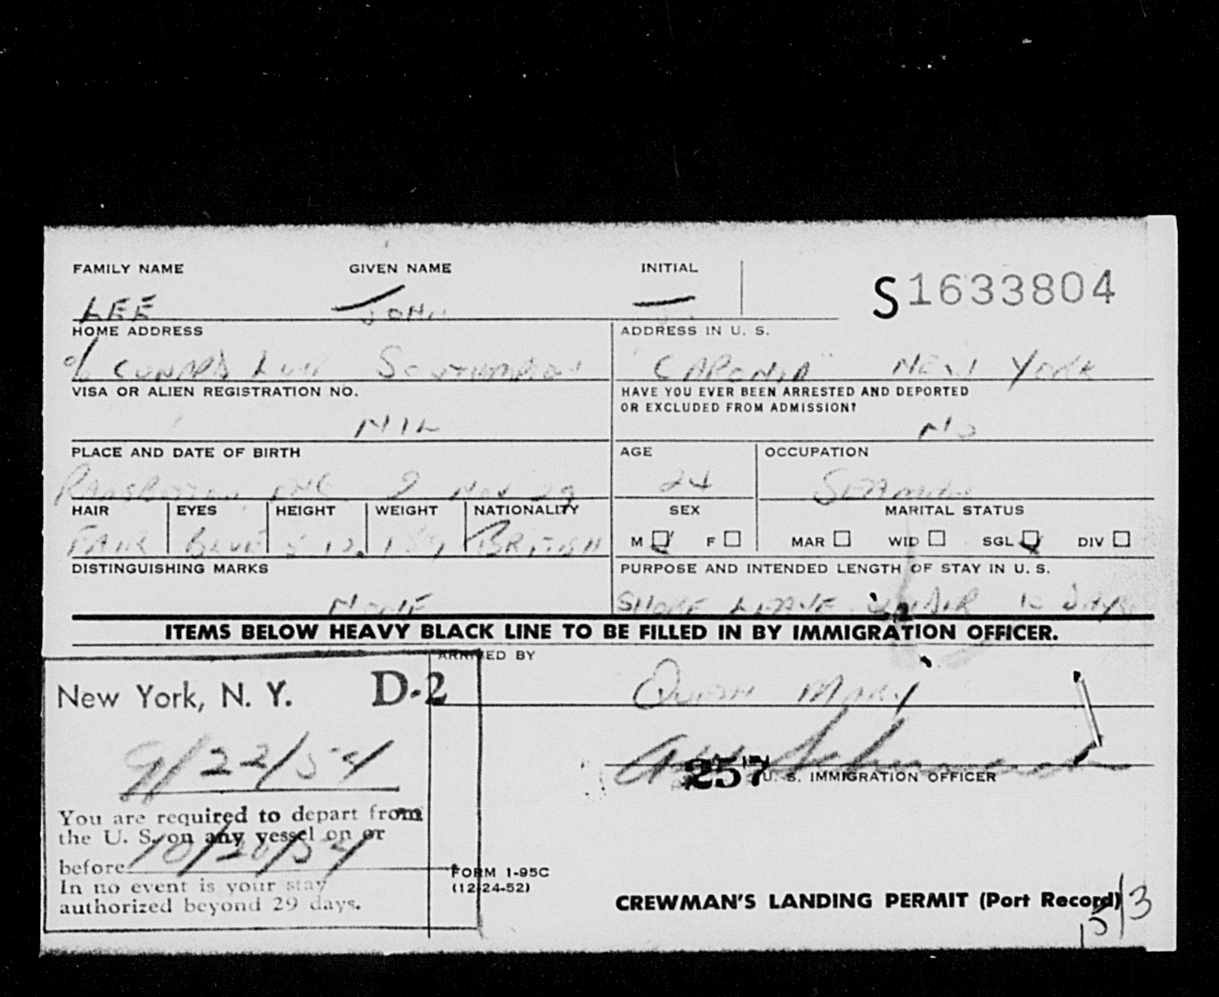 FAMILY NAME GIVEN NAME INITIAL
S1633804
LEE JOHN —
HOME ADDRESS ADDRESS IN U. S.
c/o CUNARD LINE SOUTHAMPTON "CARONIA" NEW YORK
VISA OR ALIEN REGISTRATION NO. HAVE YOU EVER BEEN ARRESTED AND DEPORTED
OR EXCLUDED FROM ADMISSION?
NIL NO
PLACE AND DATE OF BIRTH AGE OCCUPATION
ENG 2 NOV 29 24 SEAMAN
HAIR EYES HEIGHT WEIGHT NATIONALITY SEX MARITAL STATUS
FAIR BLUE BRITISH M F MAR WID SGL DIV
DISTINGUISHING MARKS PURPOSE AND INTENDED LENGTH OF STAY IN U. S.
NONE SHORE LEAVE UNDER 10 DAYS
ITEMS BELOW HEAVY BLACK LINE TO BE FILLED IN BY IMMIGRATION OFFICER.
ARRIVED BY
New York, N. Y. D-2 QUEEN MARY
9/22/54
257 U. S. IMMIGRATION OFFICER
You are required to depart from
the U. S. on any vessel on or
before 10/20/54
In no event is your stay
authorized beyond 29 days.
FORM I-95C
(12-24-52)
CREWMAN'S LANDING PERMIT (Port Record)